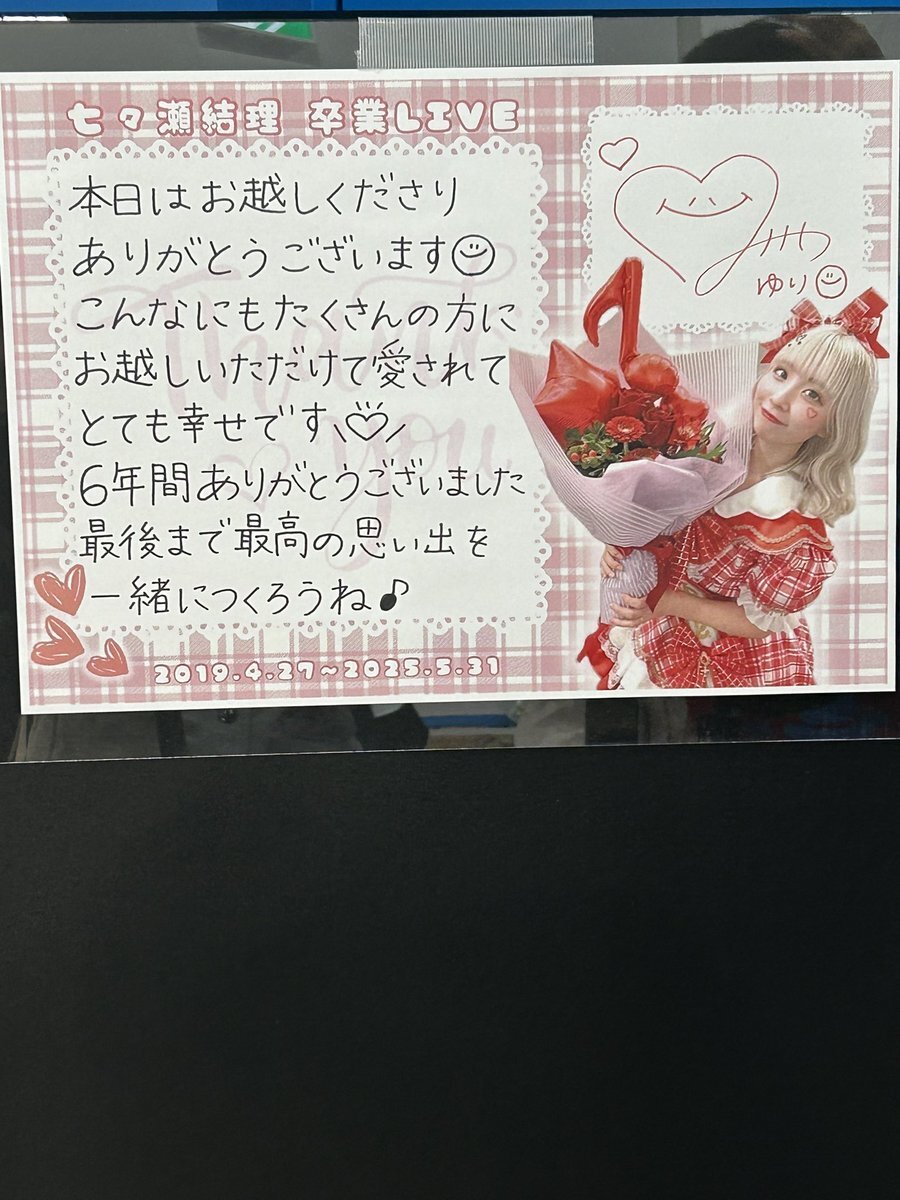 七々瀬結理 卒業LIVE
本日はお越しくださり
ありがとうございます
こんなにもたくさんの方に
お越しいただけて愛されて
とても幸せです\♡/
6年間ありがとうございました
最後まで最高の思い出を
一緒につくろうね♪
2019.4.27~2025.5.31
ゆり
Thank
you